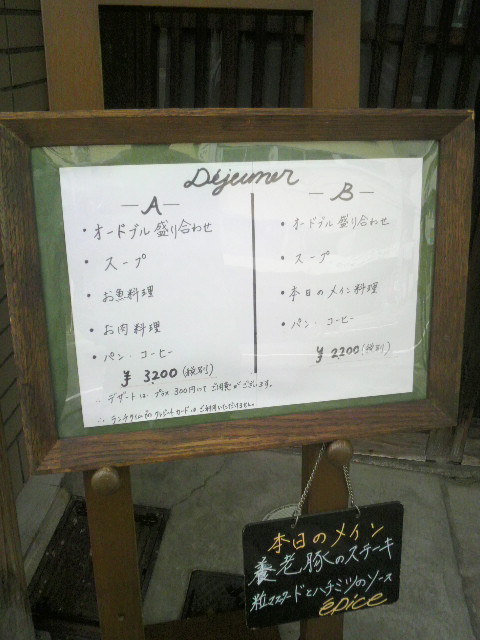 Déjeuner
—A—
・オードブル盛り合わせ
・スープ
・お魚料理
・お肉料理
・パン・コーヒー
¥3200(税別)
—B—
・オードブル盛り合わせ
・スープ
・本日のメイン料理
・パン・コーヒー
¥2200(税別)
※デザートは、プラス300円にてご用意がございます。
※ランチタイムのクレジットカードはご利用いただけません。
本日のメイン
養老豚のステーキ
粒マスタードとハチミツのソース
épice